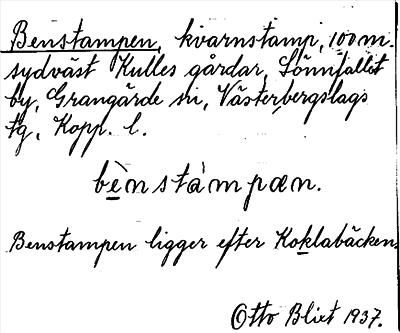 Benstampen, kvarnstamp, 100 m.
sydväst Kulles gårdar, Sönnifallet
by, Grangärde sn, Västerbergslags
tg, Kopp. l.
bènstàmpæn.
Benstampen ligger efter Koklabäcken.
Otto Bliet 1937.